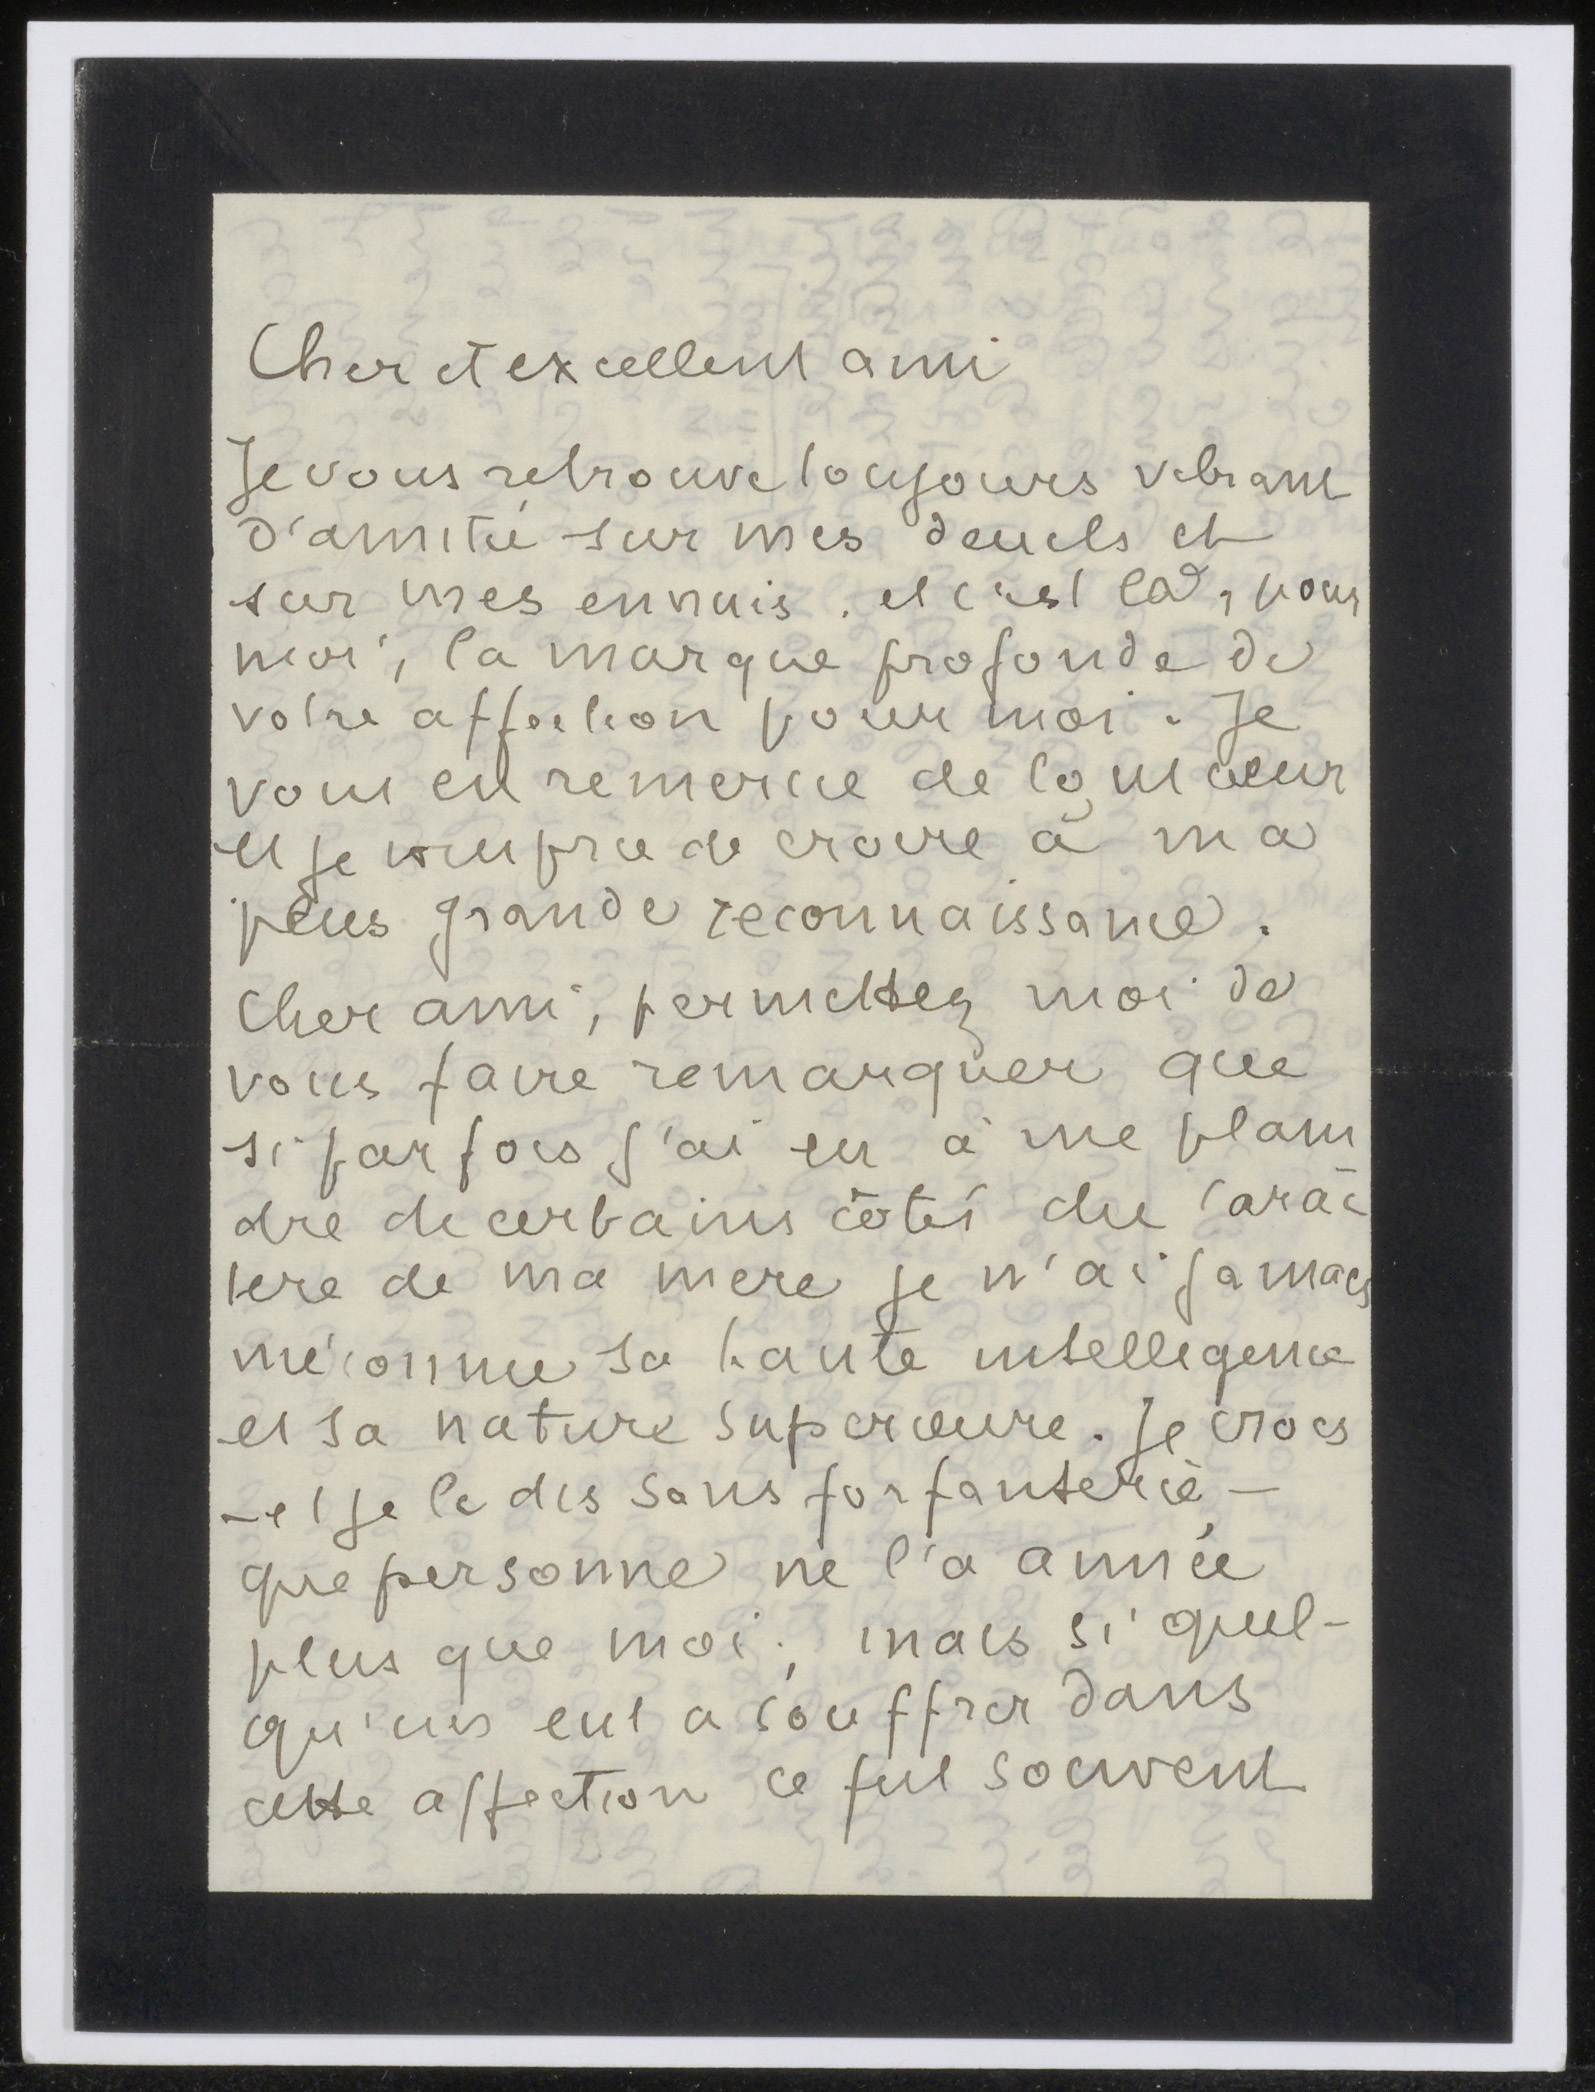 Cher et excellent ami
Je vous retrouve toujours vibrant
d'amitié sur mes deuils et
sur mes ennuis. et c'est là, pour
moi, la marque profonde de
votre affection pour moi. Je
vous en remercie de tout cœur
et je vous prie de croire à ma
plus grande reconnaissance.
Cher ami, permettez moi de
vous faire remarquer que
si parfois j'ai eu à me plain
dre de certains côtés du carac
tere de ma mere je n'ai jamais
méconnu sa haute intelligence
et sa nature superieure. Je crois
– et je le dis sans forfanterie –
que personne ne l'a aimée
plus que moi; mais si quel-
qu'un eut a souffrir dans
cette affection ce fut souvent